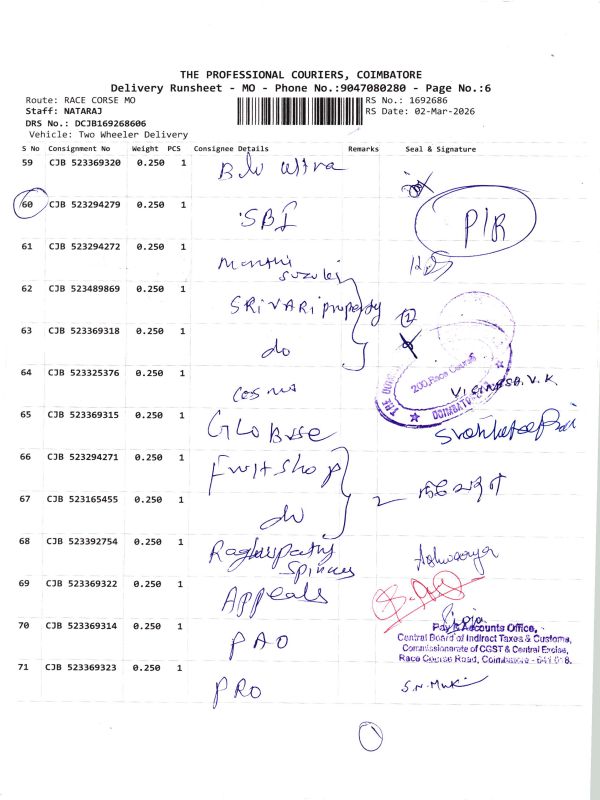 THE PROFESSIONAL COURIERS, COIMBATORE
Delivery Runsheet - MO - Phone No.:9047080280 - Page No.:6
Route: RACE CORSE MO RS No.: 1692686
Staff: NATARAJ RS Date: 02-Mar-2026
DRS No.: DCJB169268606
Vehicle: Two Wheeler Delivery
S No Consignment No Weight PCS Consignee Details Remarks Seal & Signature
59 CJB 523369320 0.250 1
60 CJB 523294279 0.250 1 SBI P/R
61 CJB 523294272 0.250 1 Suzuki
62 CJB 523489869 0.250 1 SRIVARI property 2
63 CJB 523369318 0.250 1 do
200, Race Course
COIMBATORE
64 CJB 523325376 0.250 1 cosmo V.K.
65 CJB 523369315 0.250 1
66 CJB 523294271 0.250 1 Fruit shop
67 CJB 523165455 0.250 1 do 2
68 CJB 523392754 0.250 1 Raghupathy Aishwarya
69 CJB 523369322 0.250 1 Appeals
70 CJB 523369314 0.250 1 PAO
Pay & Accounts Office,
Central Board of Indirect Taxes & Customs,
Commissionerate of CGST & Central Excise,
Race Course Road, Coimbatore - 641 018.
71 CJB 523369323 0.250 1 PRO